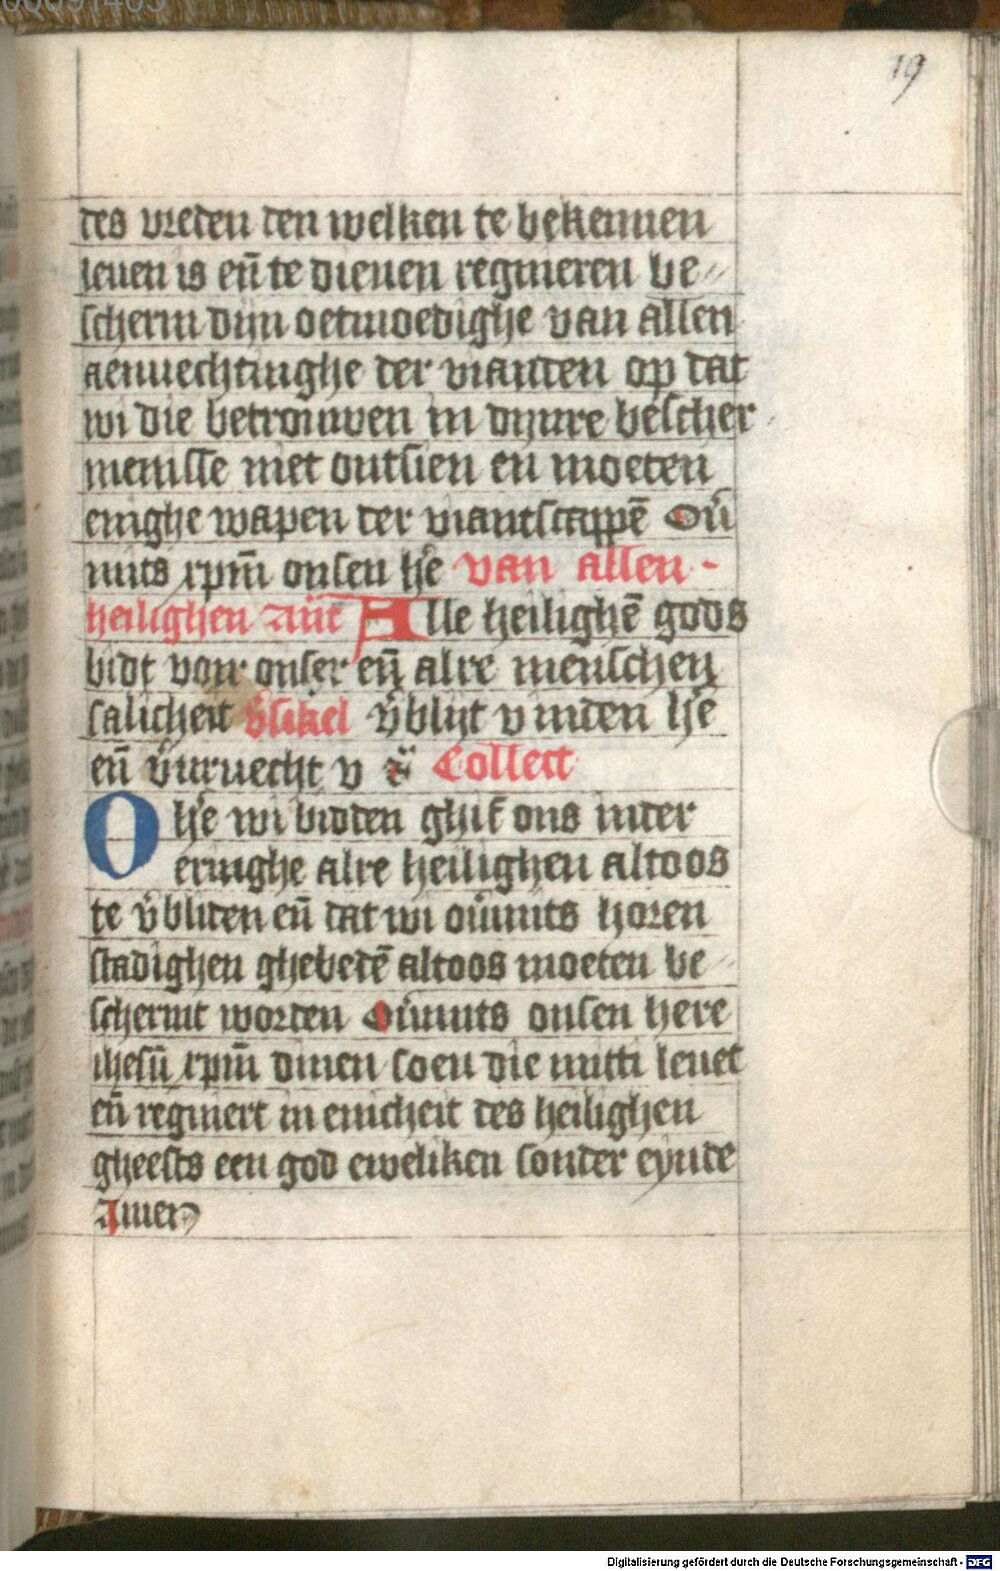 00091403
19
des vreden den welken te bekennen
leuen is en̄ te dienen regnieren be
scherm dijn oetmoedighe van allen
aenuechtinghe der vianden op dat
wi die betrouwen in dijnre bescher
menisse niet ontsien en moeten
enighe wapen der viantscappē Ou̅
mits xpm̄ onsen hē van allen
heilighen Ant̄ Alle heilighē gods
bidt voir onser en̄ alre menschen
salicheit v̄sikel v̄blijt v inden hē
en̄ v̄uruecht v Collect
O hē wi bidden ghif ons inder
eringhe alre heilighen altoos
te v̄bliden en̄ dat wi ou̅mits horen
stadighen ghebedē altoos moeten be
schermt worden Ou̅mits onsen here
ihesū xpm̄ dinen soen die mitti leuet
en̄ regniert in enicheit des heilighen
gheests een god eweliken sonder eynde
Amen
Digitalisierung gefördert durch die Deutsche Forschungsgemeinschaft - DFG